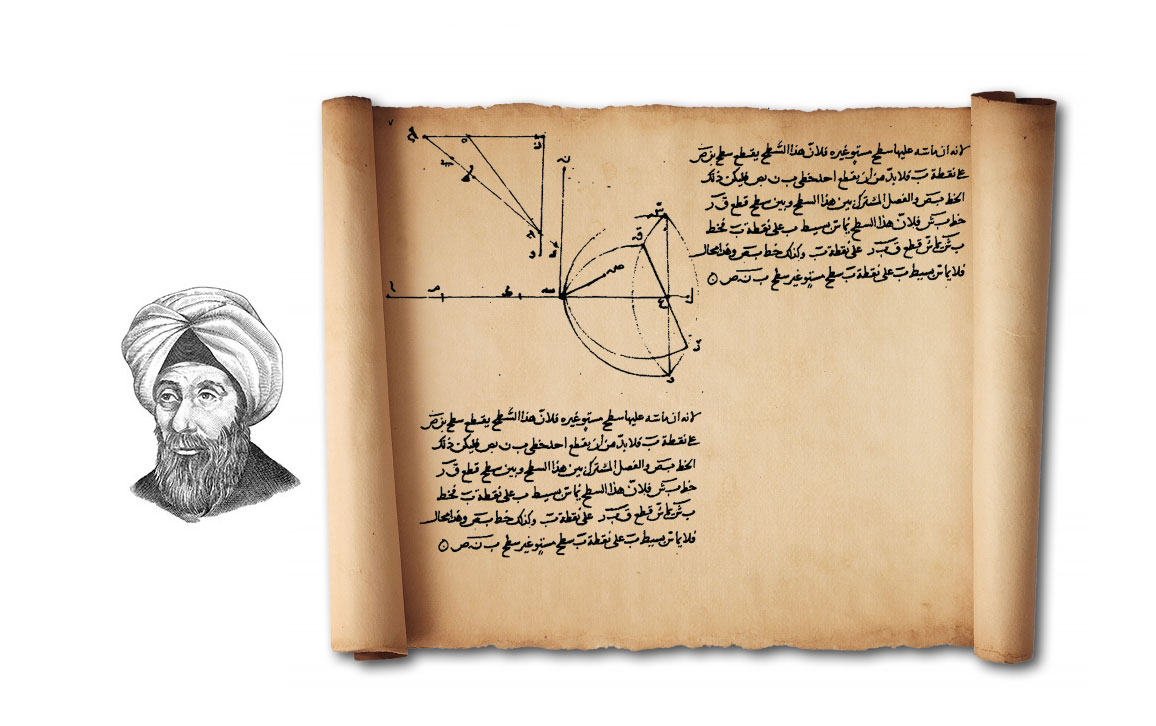 لانه ان ماسه عليها سطح مستو غيره فلان هذا السطح يقطع سطح بن ص
على نقطة ب فلا بد من ان يقطع احد خطي ب ن بص فليكن ذلك
الخط بص والفصل المشترك بين هذا السطح وبين سطح قطع ق ب ر
خط ب ش فلان هذا السطح يماس بسيط ب على نقطة ب فخط
ب ش يماس قطع ق ب ر على نقطة ب وكذلك خط ب ص وهذا محال
فلا يماس بسيط ب على نقطة ب سطح مستو غير سطح ب ن ص
لانه ان ماسه عليها سطح مستو غيره فلان هذا السطح يقطع سطح بن ص
على نقطة ب فلا بد من ان يقطع احد خطي ب ن بص فليكن ذلك
الخط بص والفصل المشترك بين هذا السطح وبين سطح قطع ق ب ر
خط ب ش فلان هذا السطح يماس بسيط ب على نقطة ب فخط
ب ش يماس قطع ق ب ر على نقطة ب وكذلك خط ب ص وهذا محال
فلا يماس بسيط ب على نقطة ب سطح مستو غير سطح ب ن ص